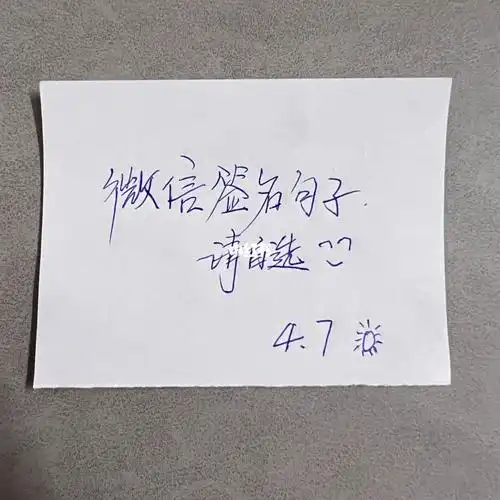 微信签名句子.
请自选
4.7